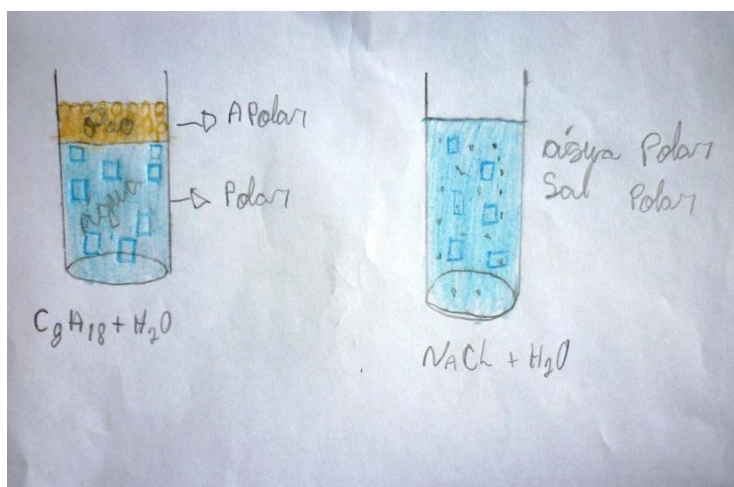 óleo
APolar
água
Polar
C8H18 + H2O
água Polar
Sal Polar
NaCl + H2O